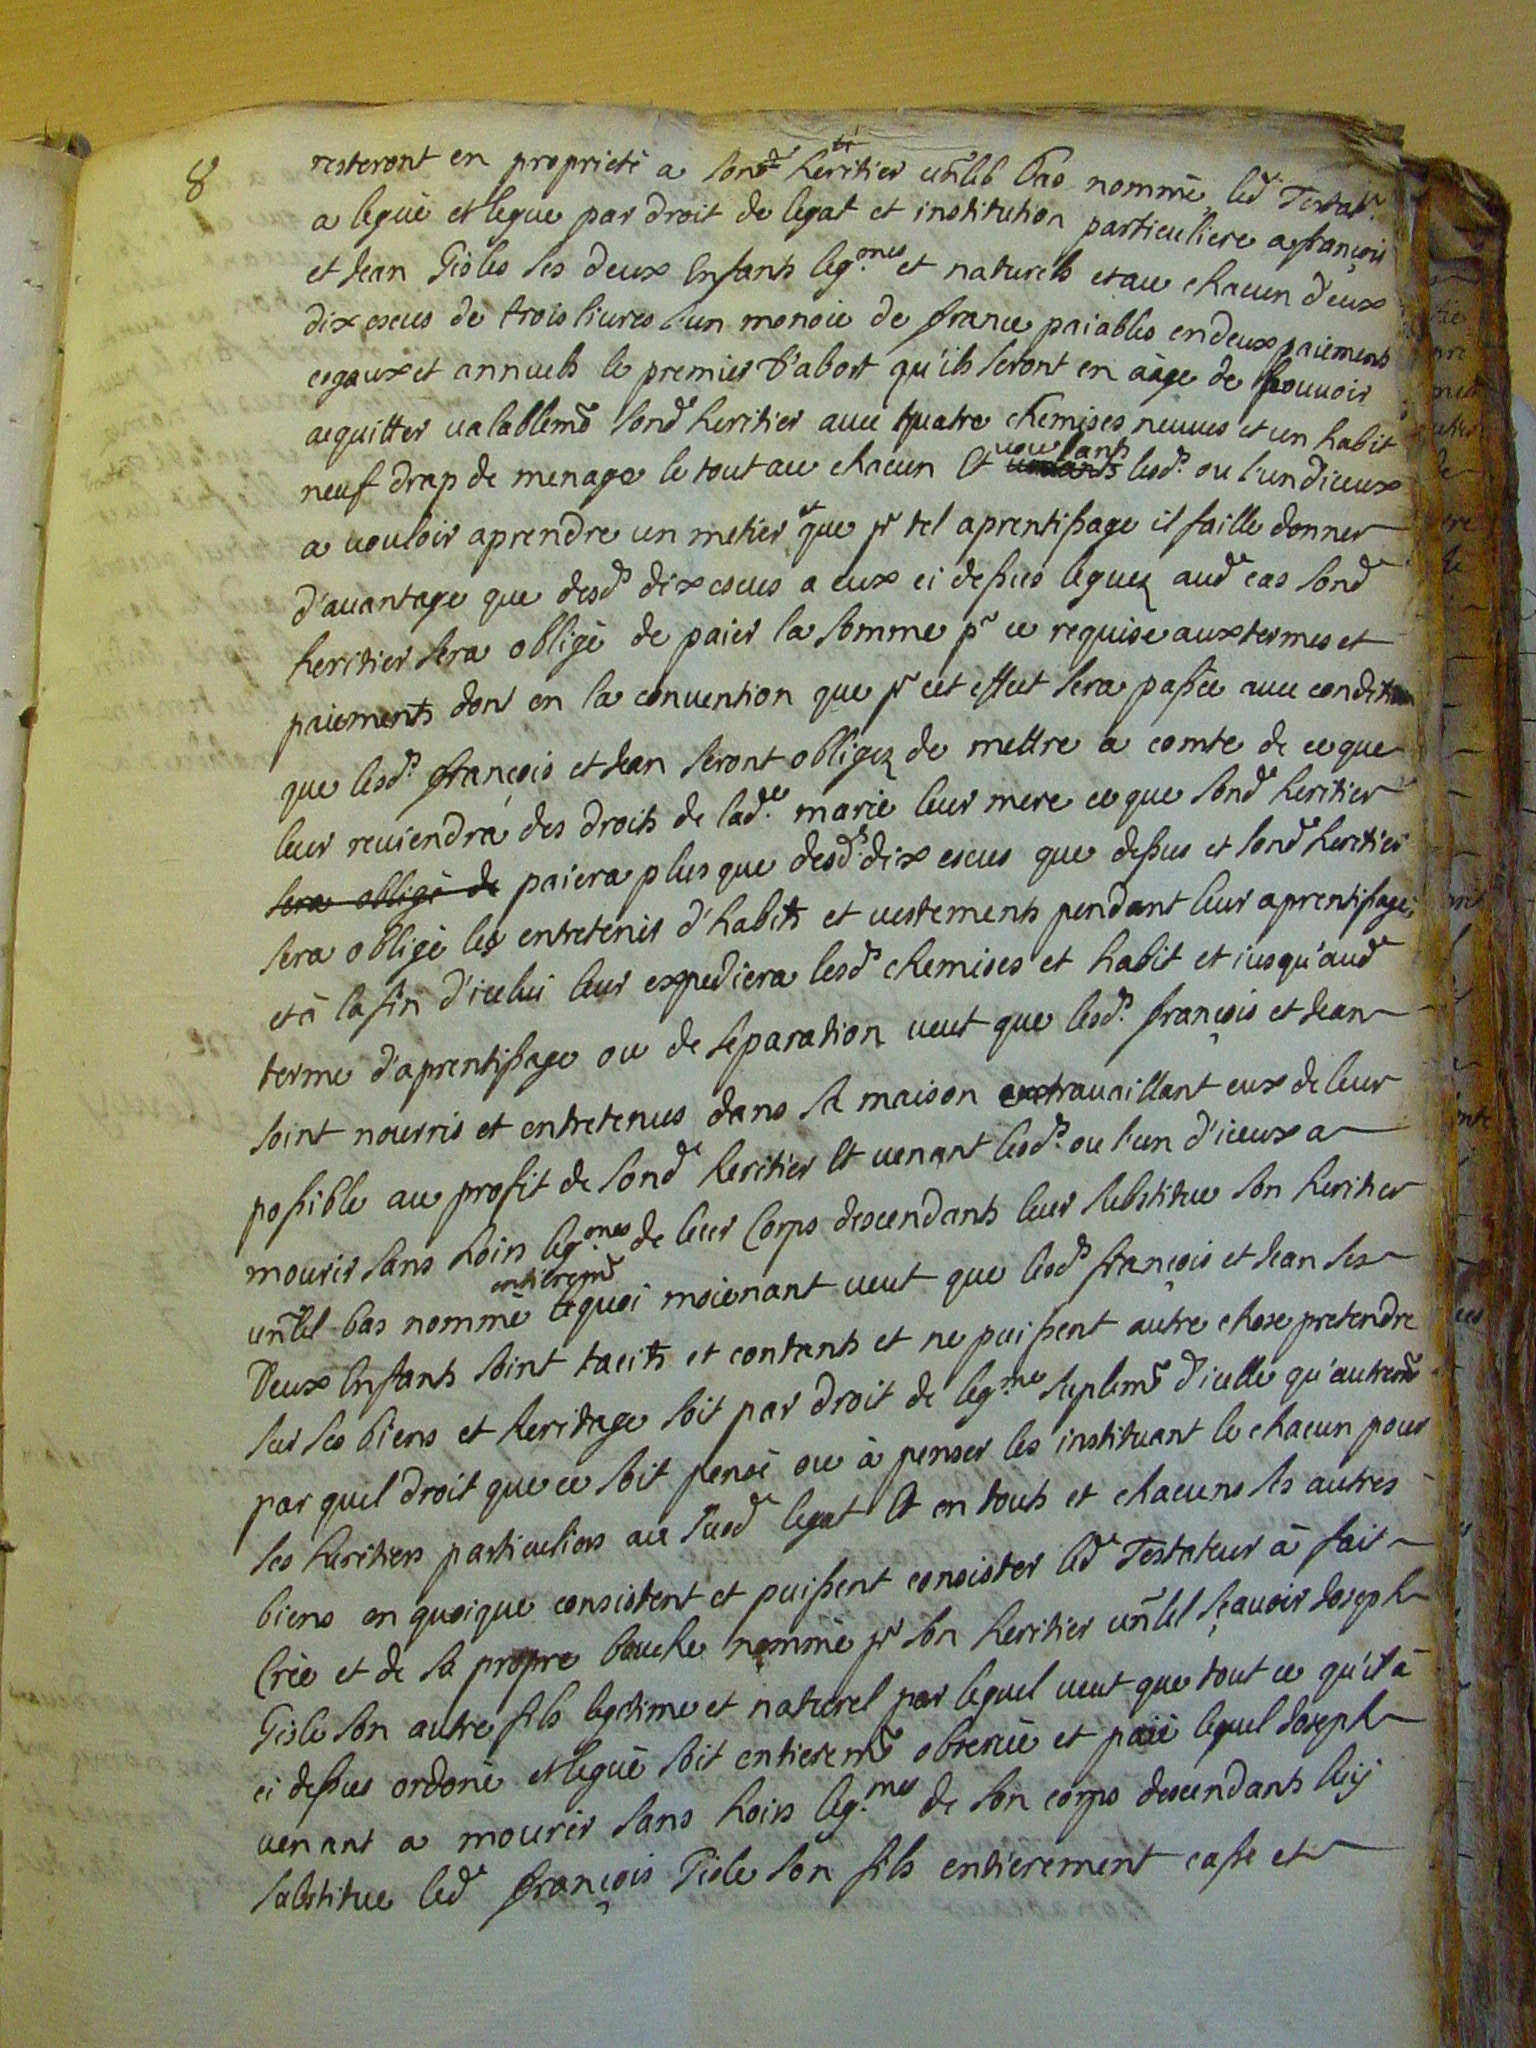 8
resteront en proprieté a sond.e heritier unlel bas nommé led.t Testat.r
a legué et legue par droit de legat et institution particuliere a françois
et Jean Gisles ses deux Enfants leg.mes et naturels et au chacun d'eux
dix escus de trois liures l'un monoie de france paiables en deux paiements
esgaux et annuels le premier d'abort qu'ils seront en aàge de pouuoir
acquitter ualablemt sond.t heritier auec quatre chemises neuues et un habit
neuf drap de menage le tout au chacun Et uoulants lesd.s ou l'un d'iceux
a uouloir aprendre un metier et que pr tel aprentissage il faille donner
d'auantage que desd.s dix escus a eux ci dessus leguez aud.t cas sond.t
heritier sera obligé de paier la somme pr ce requise aux termes et
paiements dont en la conuention que pr cet effect sera passée auec condition
que lesd.s françois et Jean seront obligez de mettre a comte de ce que
leur reuiendra des droits de lad.te marie leur mere ce que sond.t heritier
sera obligé de paiera plus que desd.s dix escus que dessus et sond.t heritier
sera obligé les entretenir d'habits et uestements pendant leur aprentissage,
et à la fin d'icelui leur expediera lesd.s chemises et habit et iusqu'aud.t
terme d'aprentissage ou de separation ueut que lesd.s françois et Jean
soint nourris et entretenus dans sa maison trauaillant eux de leur
possible au profit de sond.t heritier Et uenant lesd.s ou l'un d'iceux a
mourir sans hoirs leg.mes de leur Corps descendants leur substitue son heritier
unlel bas nommé entieremt Cequoi moienant ueut que lesd.s françois et Jean ses
Deux Enfants soint tacits et contants et ne puissent autre chose pretendre
sur ses biens et heritage soit par droit de leg.me suplemt d'icelle qu'autremt
par quel droit que ce soit pensé ou à penser les instituant le chacun pour
ses heritiers particuliers au susd.t legat Et en touts et chacuns ses autres
biens en quoique consistent et puissent consister led.t Testateur à fait
Crée et de sa propre bouche nommé pr son heritier unlel sçauoir Joseph
Gisle son autre fils legitime et naturel par lequel ueut que tout ce qu'il à
ci dessus ordoné et legué soit entieremt obserué et paié lequel Joseph
uenant a mourir sans hoirs leg.mes de son corps descendants luij
substitue led.t françois Gisle son fils entierement casse et